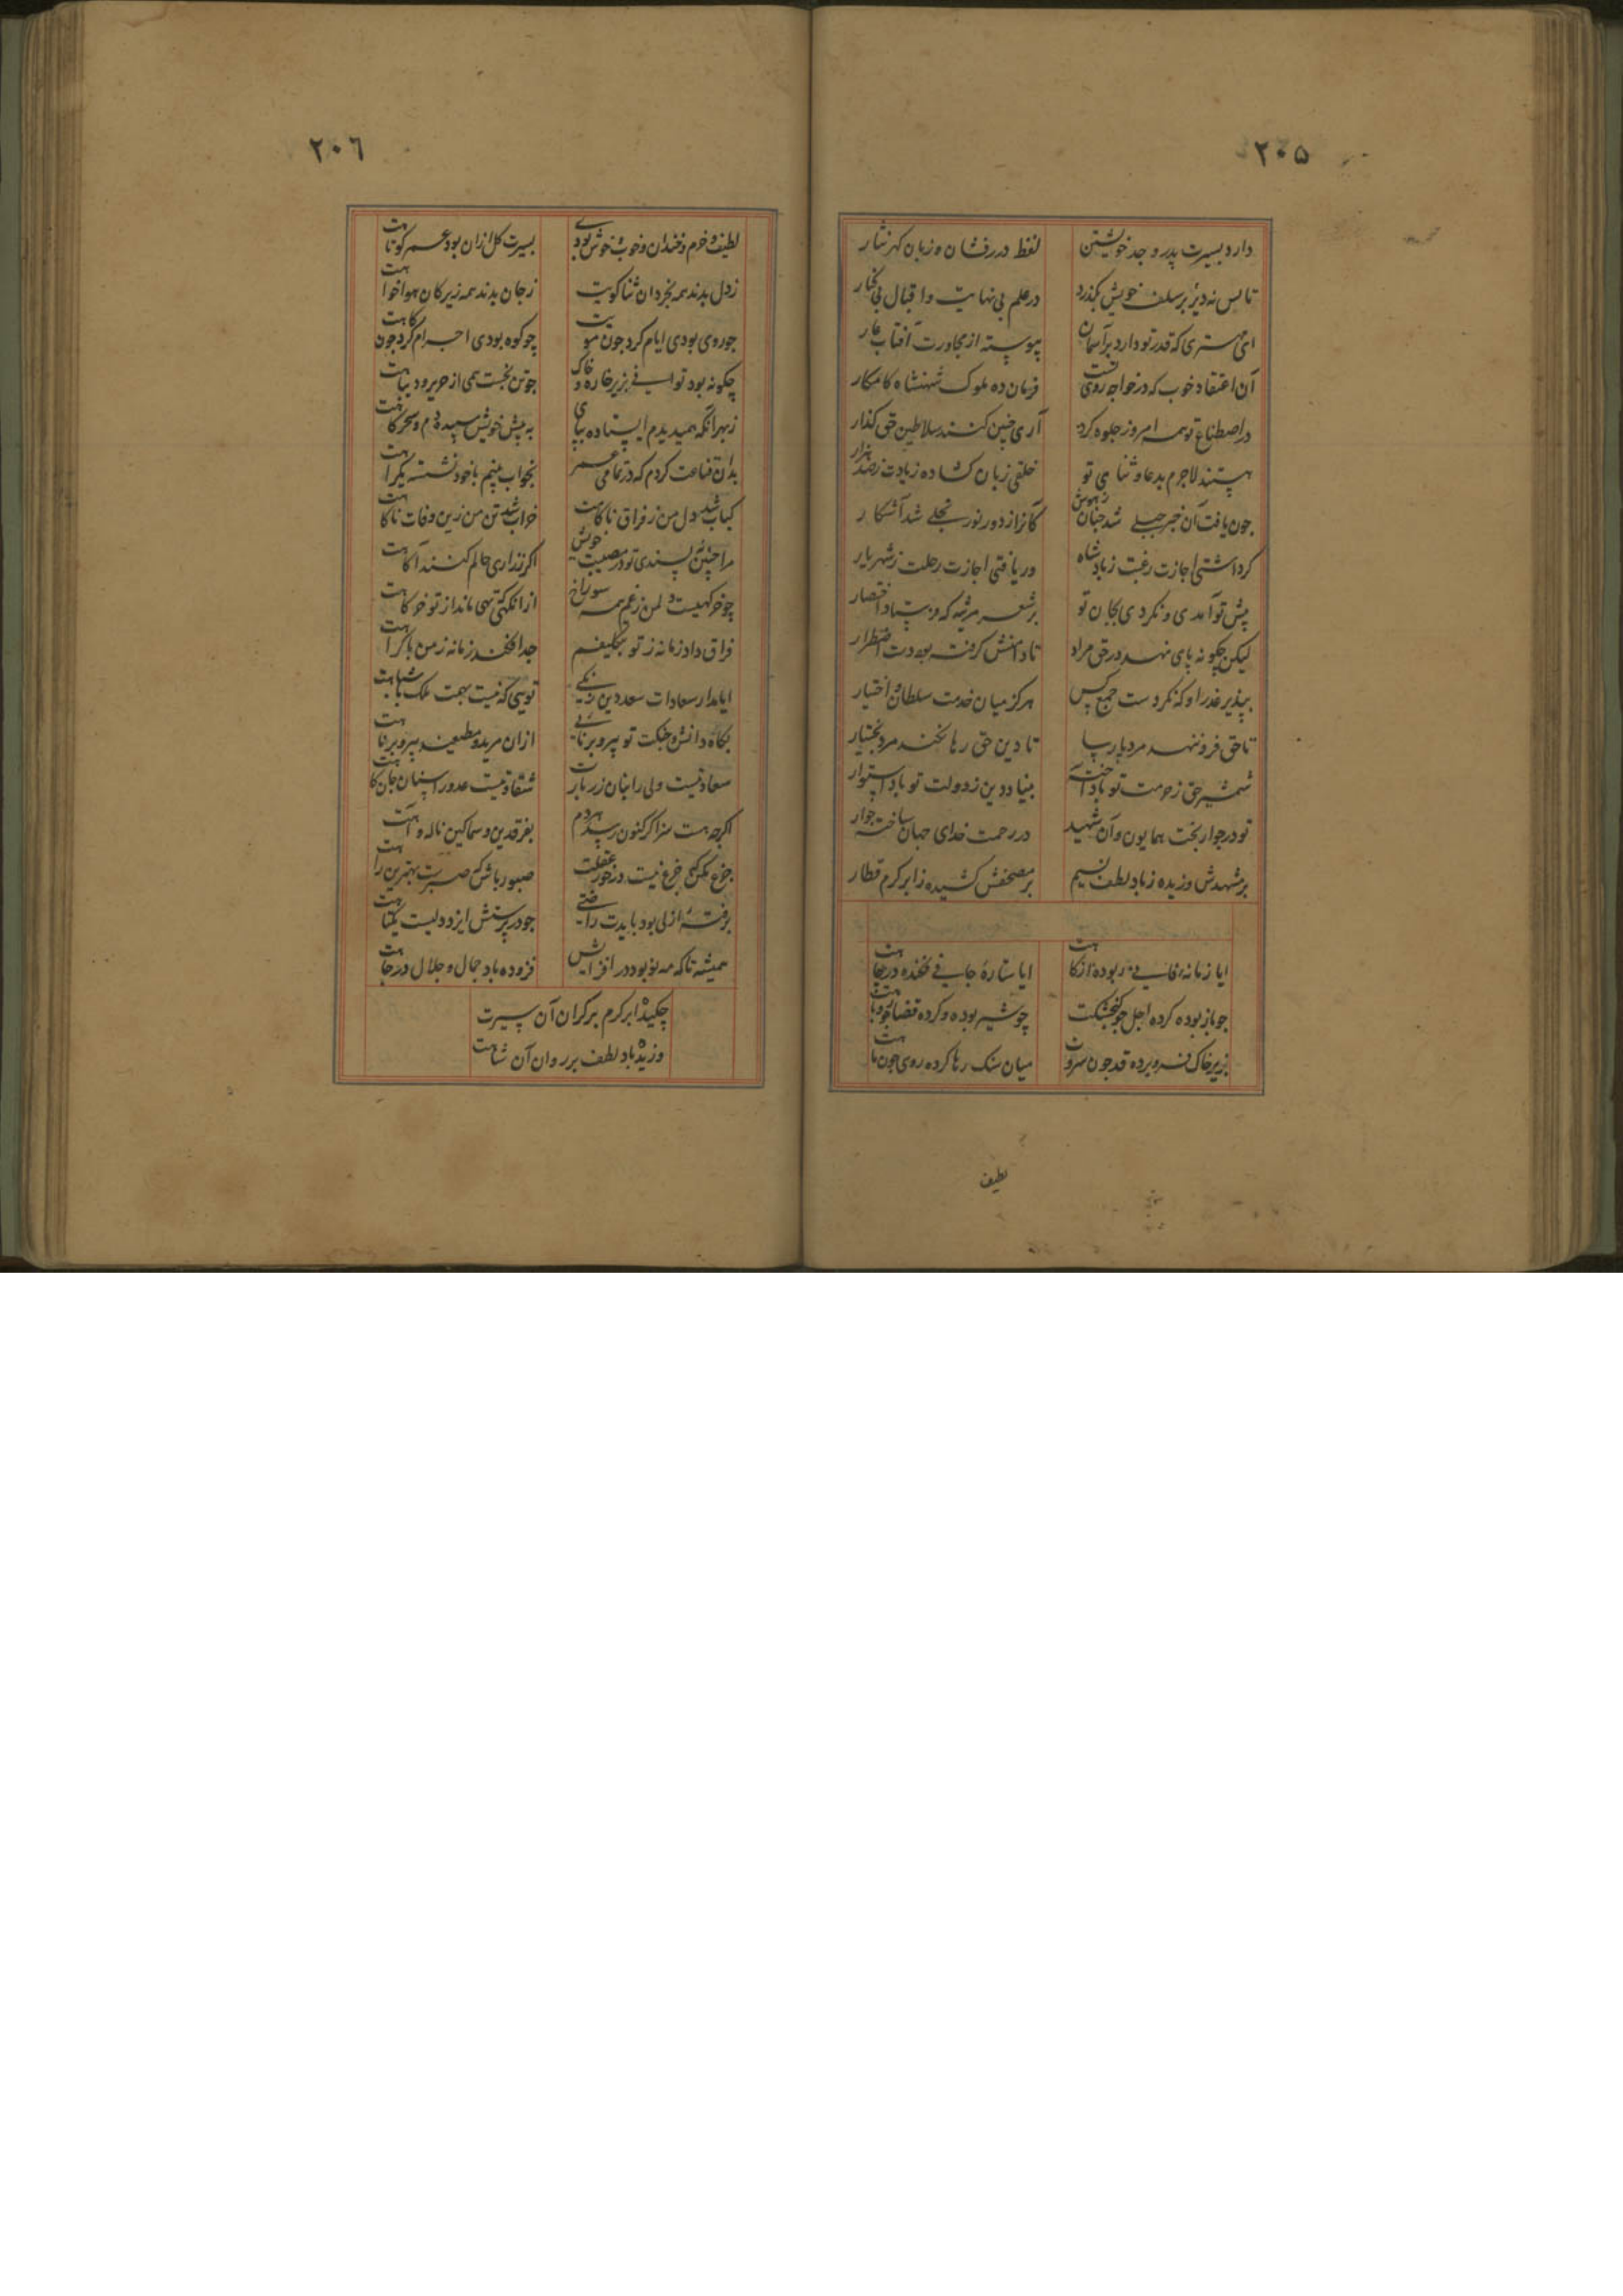 ۲۰۵
دارد بسیرت پدر و جد خویشتن لفظ درر فشان و زبان کهر نثار
تا بس نه دیر بر سلف خویش بکذرد در علم بی نهایت و اقبال بی کنار
ای مهتری که قدر تو دارد بر آسمان پیوسته از مجاورت آفتاب عار
آن اعتقاد خوب که در خواجه روی تست فرمان ده ملوک شهنشاه کامکار
در اصطناع تو همه امروز جلوه کرد آری چنین کنند سلاطین حق کذار
هستند لاجرم بدعا و ثنای تو خلقی زبان کشاده زیادت ز صد هزار
جون یافت آن خبر جبلی شد جنان ز هوش کانرا ز دور نور تجلی شد آشکار
کر داشتی اجازت رغبت ز پادشاه ور یافتی اجازت رحلت ز شهریار
پیش تو آمدی و نکردی بجان تو بر شعر مرثیه که فرستاد اقتصار
لیکن چکونه پای نهد در حق مراد تا دامنش کرفته بود دست اضطرار
بپذیر عذر او که نکردست جمع کس هرکز میان خدمت سلطان و اختیار
تا حق فرو ننهد مرد پارسا تا دین حق رها نکند مرد بختیار
شمشیر حق ز حرمت تو باد آخته بنیاد دین ز دولت تو باد استوار
تو در جوار بخت همایون و آن شهید در رحمت خدای جهان ساخته جوار
بر مشهدش وزیده ز باد لطف نسیم بر مضجعش کشیده ز ابر کرم قطار
ایا زمانه فانی ربوده از کاهت ایا ستاره جافی فکنده در چاهت
جو باز بوده کرده اجل جو کنجشکت چو شیر بوده و کرده قضا جو روباهت
بزیر خاک فرو برده قد جون سروت میان سنک رها کرده روی جون ماهت
لطیف
۲۰٦
لطیف و خرم و خندان و خوب و خوش بودی بسیرت کل از ان بود عمر کوتاهت
ز دل بدند همه بخردان ثنا کویت ز جان بدند همه زیرکان هواخواهت
جو روی بودی ایام کرد جون مویت چو کوه بودی اجرام کرد جون کاهت
چکونه بود توانی بزیر خاره و خاک جو تن بخست همی از حریر و دیباهت
ز بهر آنکه همی دیدم ایستاده بپای به پیش خویش سپیده دم و سحرکاهت
بدان قناعت کردم که در تمامی عمر بخواب بینم با خود نشسته یکراهت
کباب شد دل من ز فراق ناکاهت خراب شد تن من زین وفات ناکاهت
مرا چنین پسندی تو در مصیبت خویش اکر ز زاری حالم کنند آکاهت
چو خرکهیست دل من ز غم همه سوراخ از آنکهی که تهی ماند از تو خرکاهت
فراق داد زمانه ز تو بتکلیفم جدا فکند زمانه ز من باکراهت
ایا مدار سعادات سعد دین زنکی تویی که نیست بهمت ملک باشباهت
بکاه دانش و حکمت تو پیر و برنایی از ان مرید و مطیعند پیر و برناهت
سعادتیست ولی را بنان زربارت شقاوتیست عدو را سنان جان کاهت
اکرچه هست سزا کر کنون رسد هر دم بفرقدین و سماکین ناله و آهت
جزع مکن که جزع نیست در خور عقلت صبور باش که صبرست بهترین راهت
برفته ازلی بود بایدت راضی جو در پرستش ایزد دلیست یکتاهت
همیشه تا که مه نو بود در افزایش فزوده باد جمال و جلال و درجاهت
چکیده ابر کرم بر کران آن سیرت
وزیده باد لطف بر روان آن شاهت